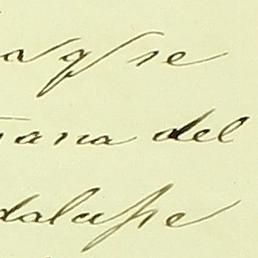 a q/ se
ana del
dalupe